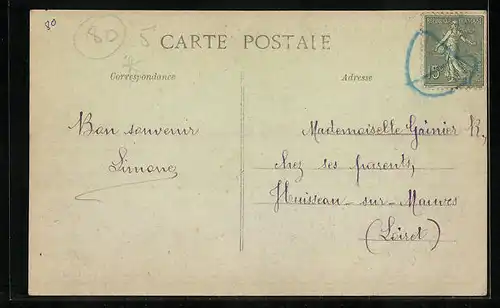 80
80
5
CARTE POSTALE
Correspondance
Adresse
REPUBLIQUE FRANÇAISE
15
Bon souvenir
Simone
Mademoiselle Garnier R.
chez ses parents,
Huisseau-sur-Mauves
(Loiret)